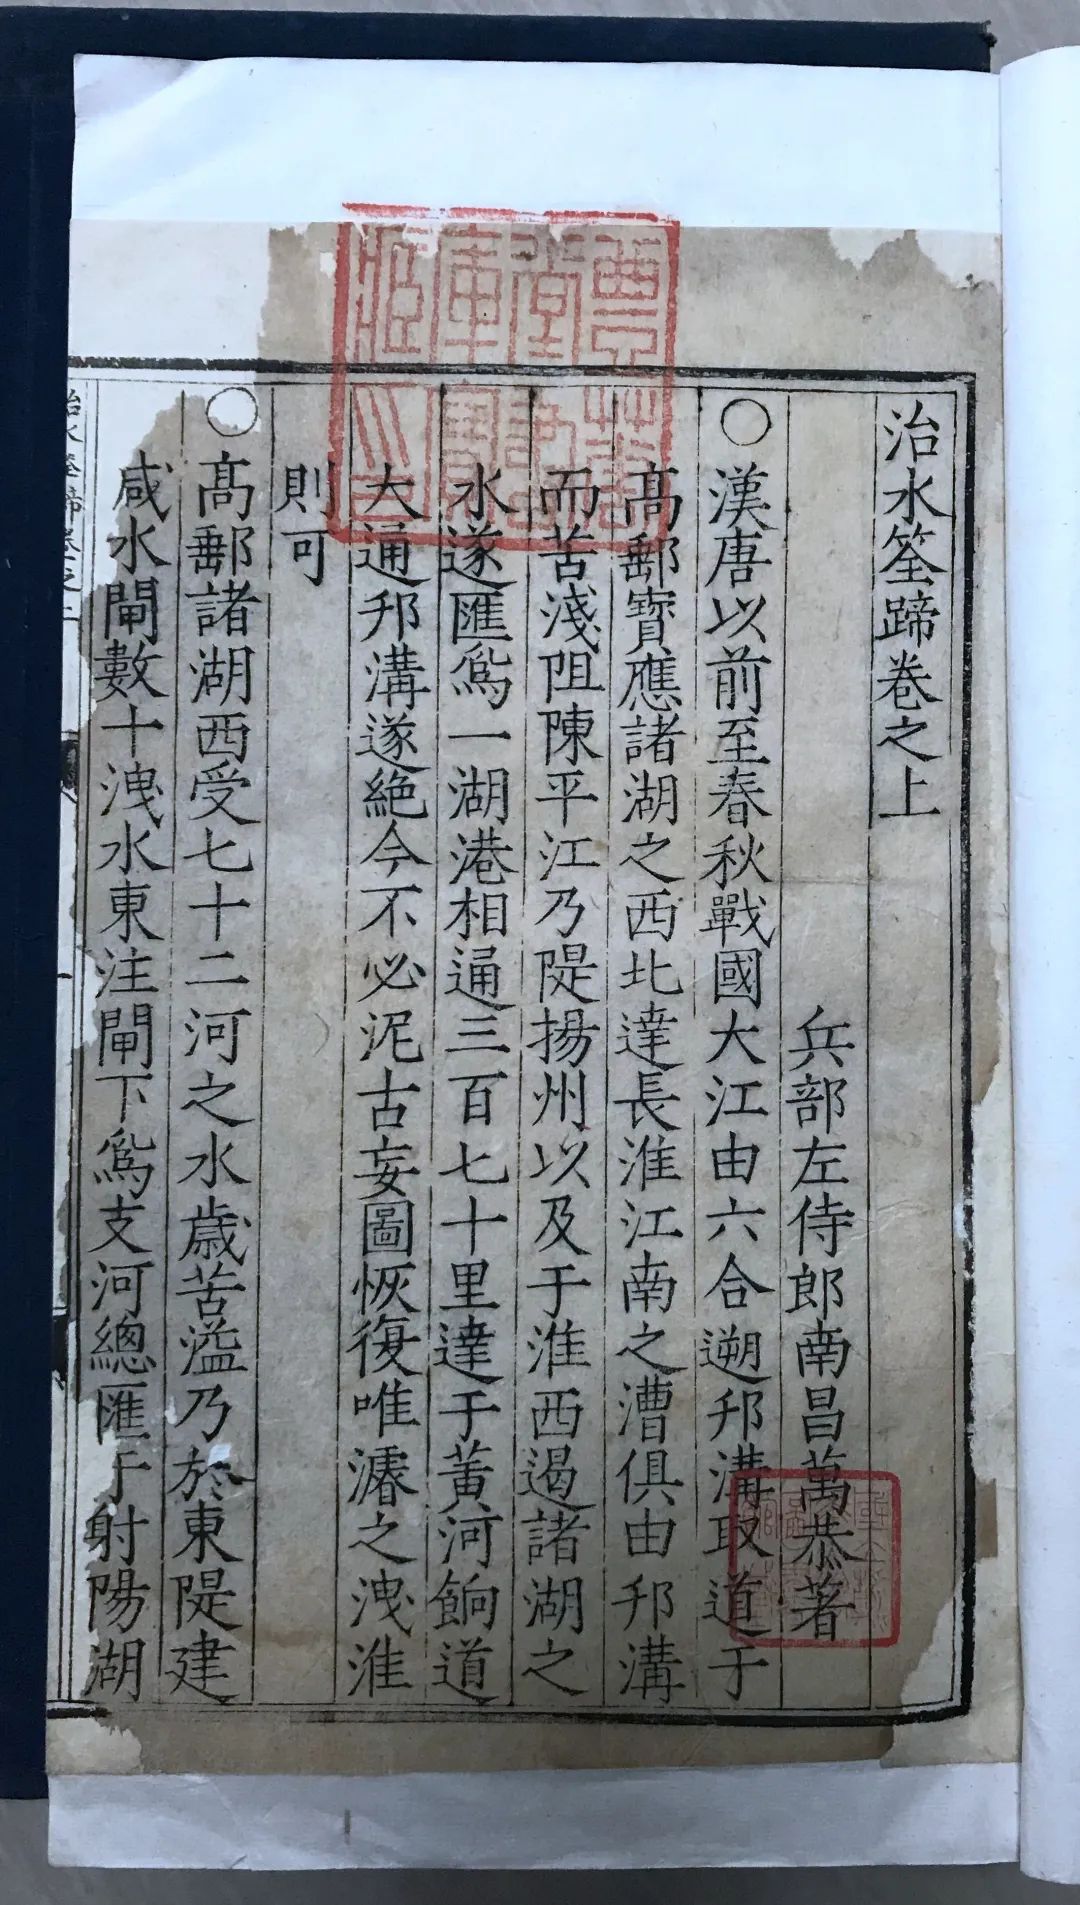 治水筌蹄卷之上
兵部左侍郎南昌萬恭著
○漢唐以前至春秋戰國大江由六合遡邗溝取道于
高郵寶應諸湖之西北達長淮江南之漕俱由邗溝
而苦淺阻陳平江乃隄揚州以及于淮西遏諸湖之
水遂匯爲一湖港相通三百七十里達于黃河餉道
大通邗溝遂絕今不必泥古妄圖恢復唯濬之洩淮
則可
○高郵諸湖西受七十二河之水歲苦溢乃於東隄建
咸水閘數十洩水東注閘下爲支河總匯于射陽湖